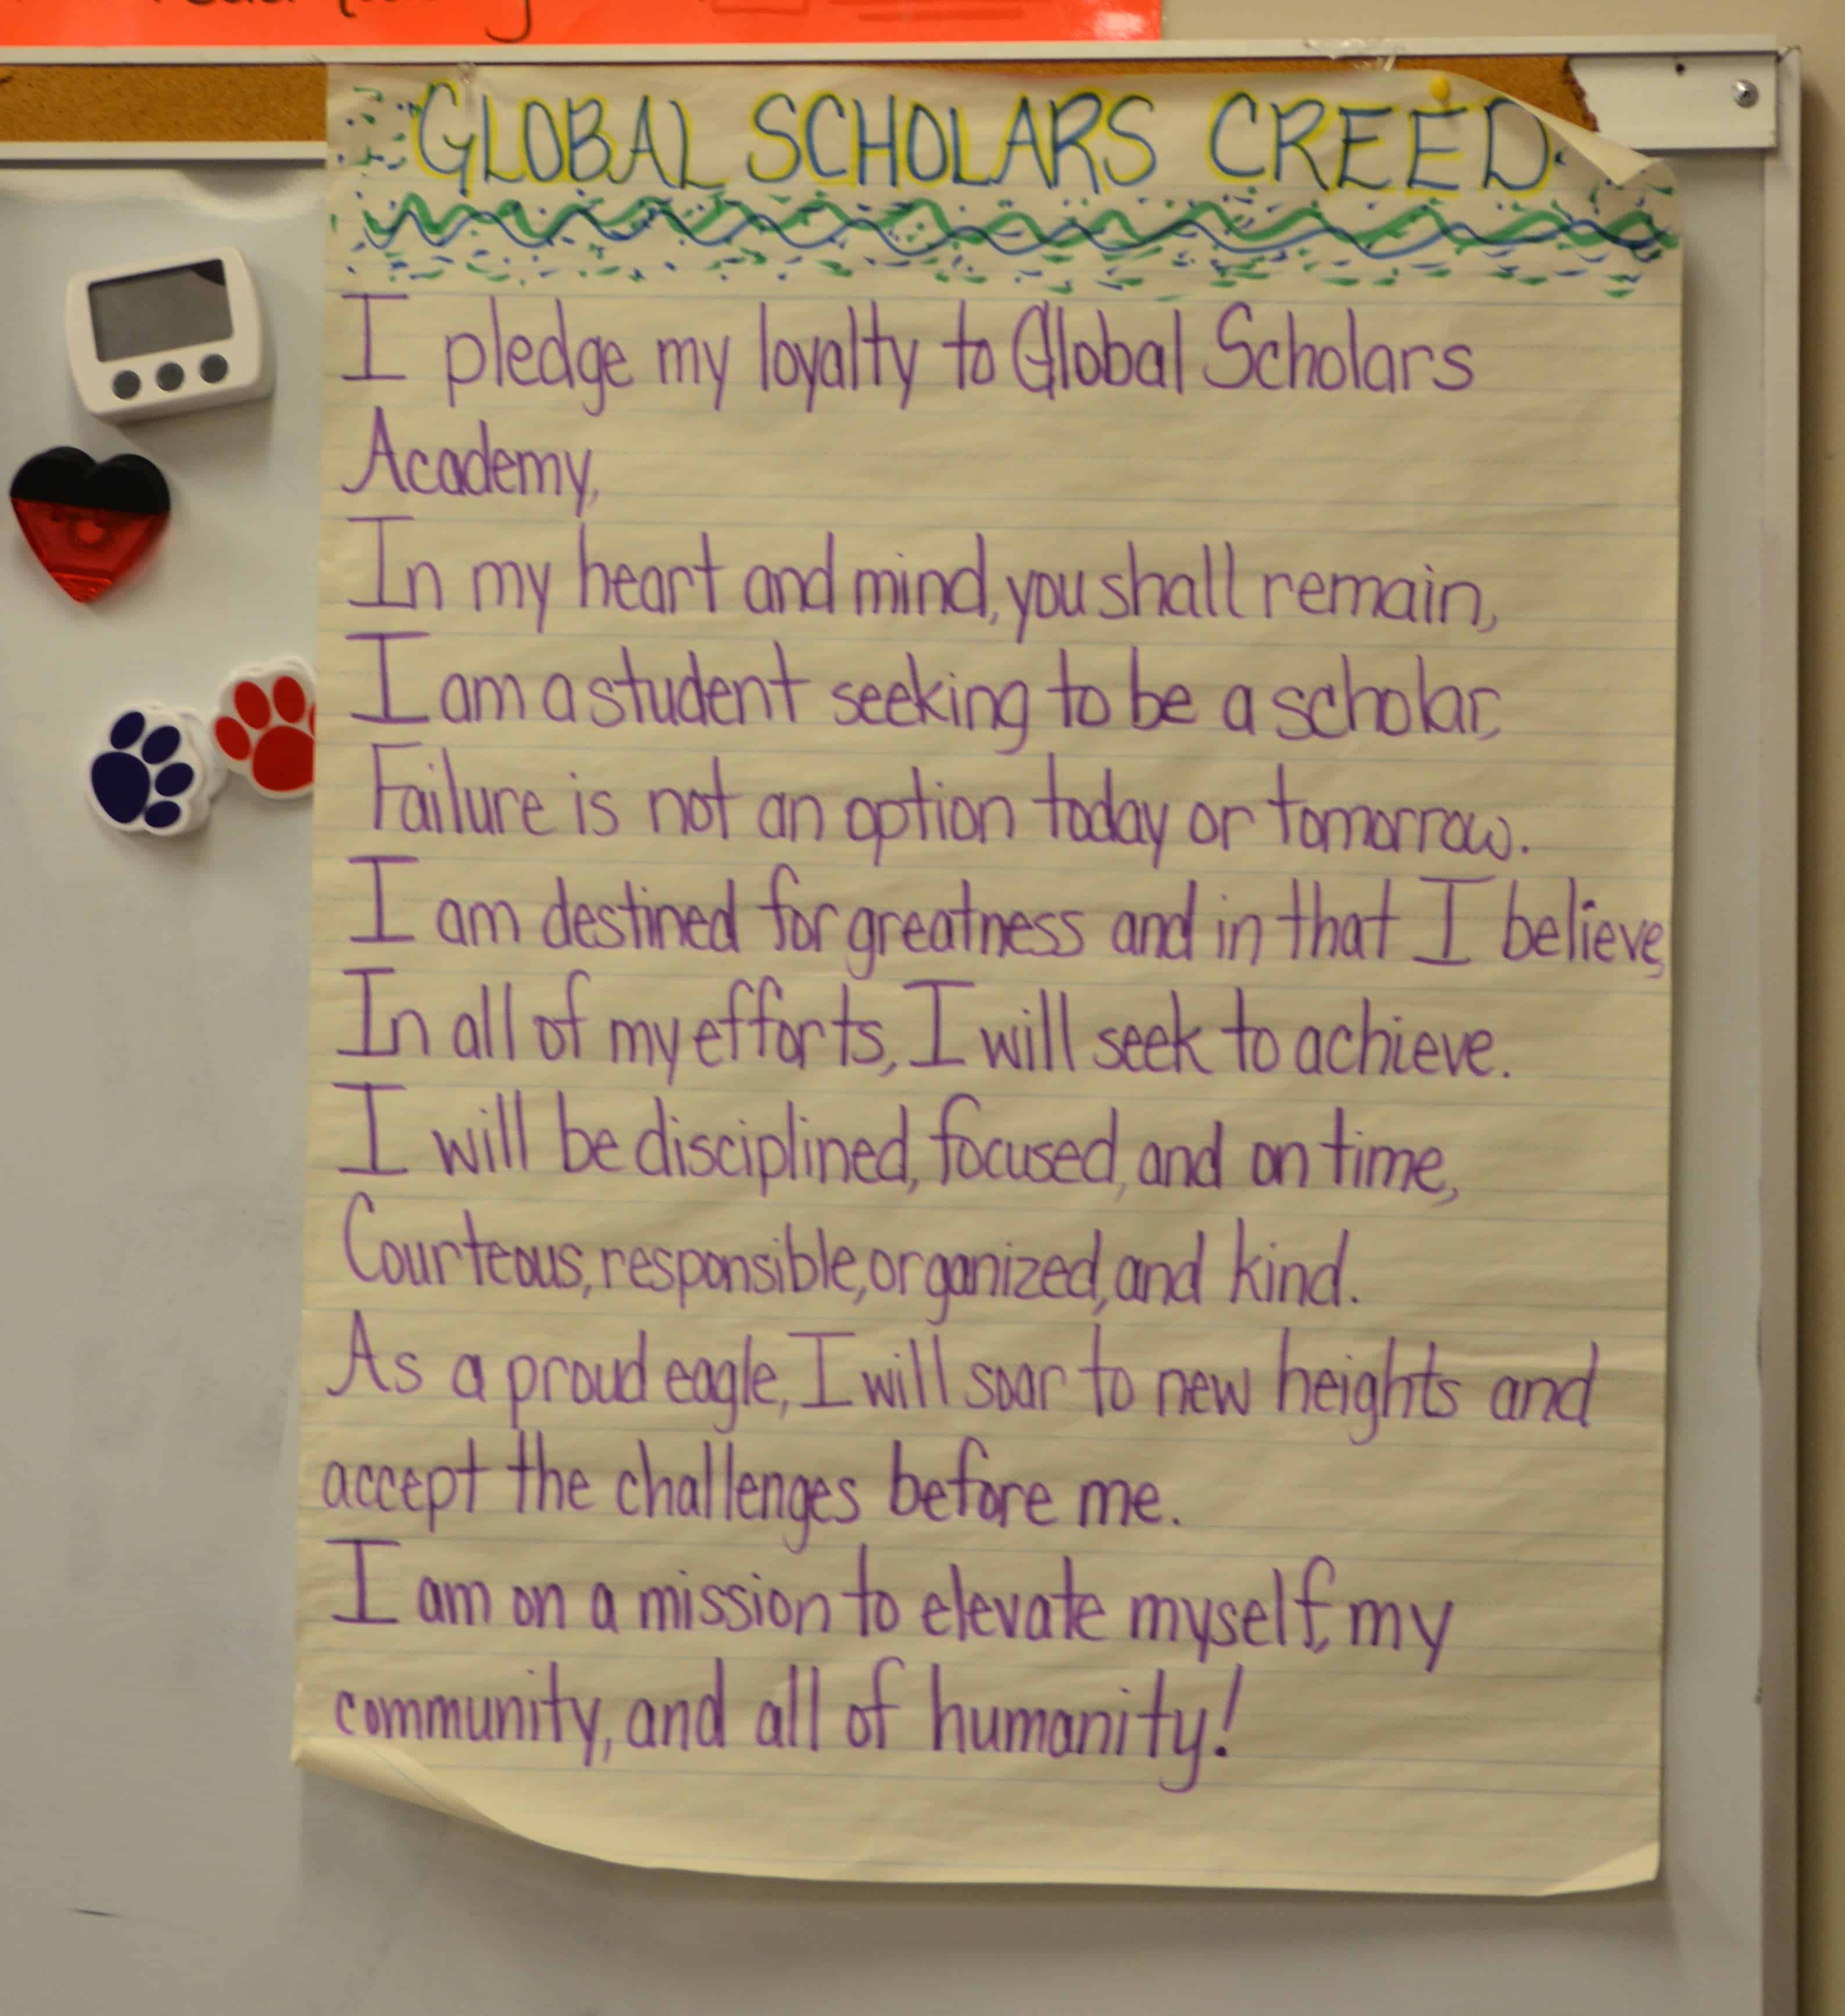 GLOBAL SCHOLARS CREED
I pledge my loyalty to Global Scholars
Academy,
In my heart and mind, you shall remain,
I am a student seeking to be a scholar,
Failure is not an option today or tomorrow.
I am destined for greatness and in that I believe,
In all of my efforts, I will seek to achieve.
I will be disciplined, focused, and on time,
Courteous, responsible, organized, and kind.
As a proud eagle, I will soar to new heights and
accept the challenges before me.
I am on a mission to elevate myself, my
community, and all of humanity!